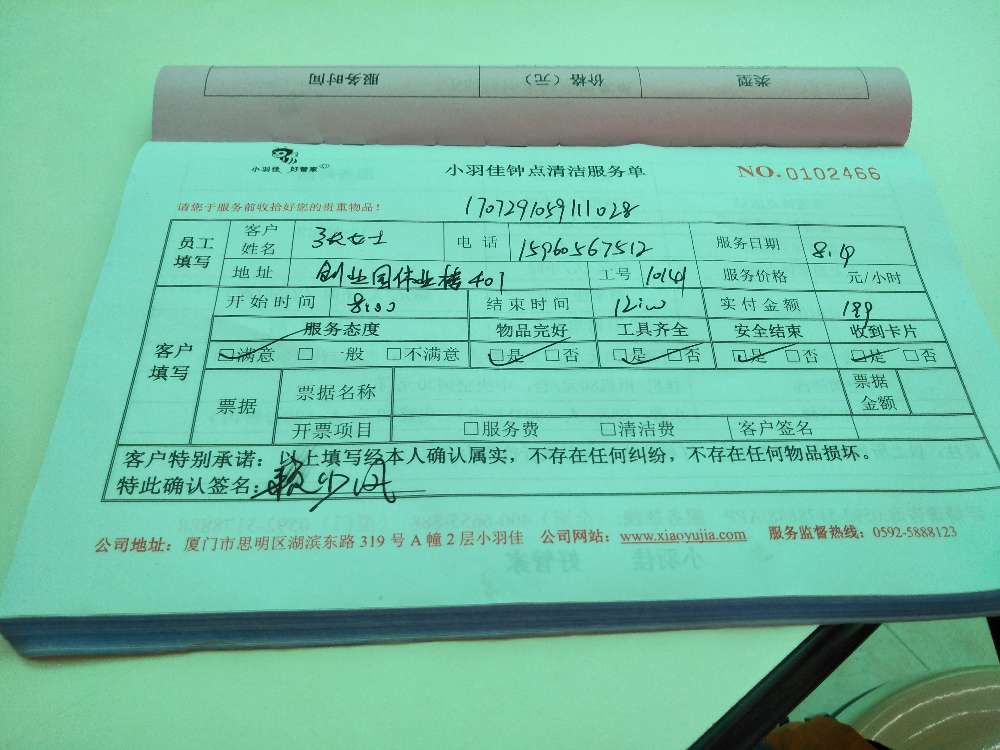 服务时间 价格（元） 类型
小羽佳 好管家
小羽佳钟点清洁服务单
NO.0102466
请您于服务前收拾好您的贵重物品！
170729105911028
员工填写 客户姓名 张女士 电话 15960567512 服务日期 8.19
地址 创业园伟业楼401 工号 10141 服务价格 元/小时
客户填写 开始时间 8:00 结束时间 12:00 实付金额
服务态度 物品完好 工具齐全 安全结束 收到卡片
☑满意 □一般 □不满意 ☑是 □否 ☑是 □否 ☑是 □否 ☑是 □否
票据 票据名称 票据金额
开票项目 □服务费 □清洁费 客户签名
客户特别承诺：以上填写经本人确认属实，不存在任何纠纷，不存在任何物品损坏。
特此确认签名：
公司地址：厦门市思明区湖滨东路 319 号 A 幢 2 层小羽佳 公司网站：www.xiaoyujia.com 服务监督热线：0592-5888123